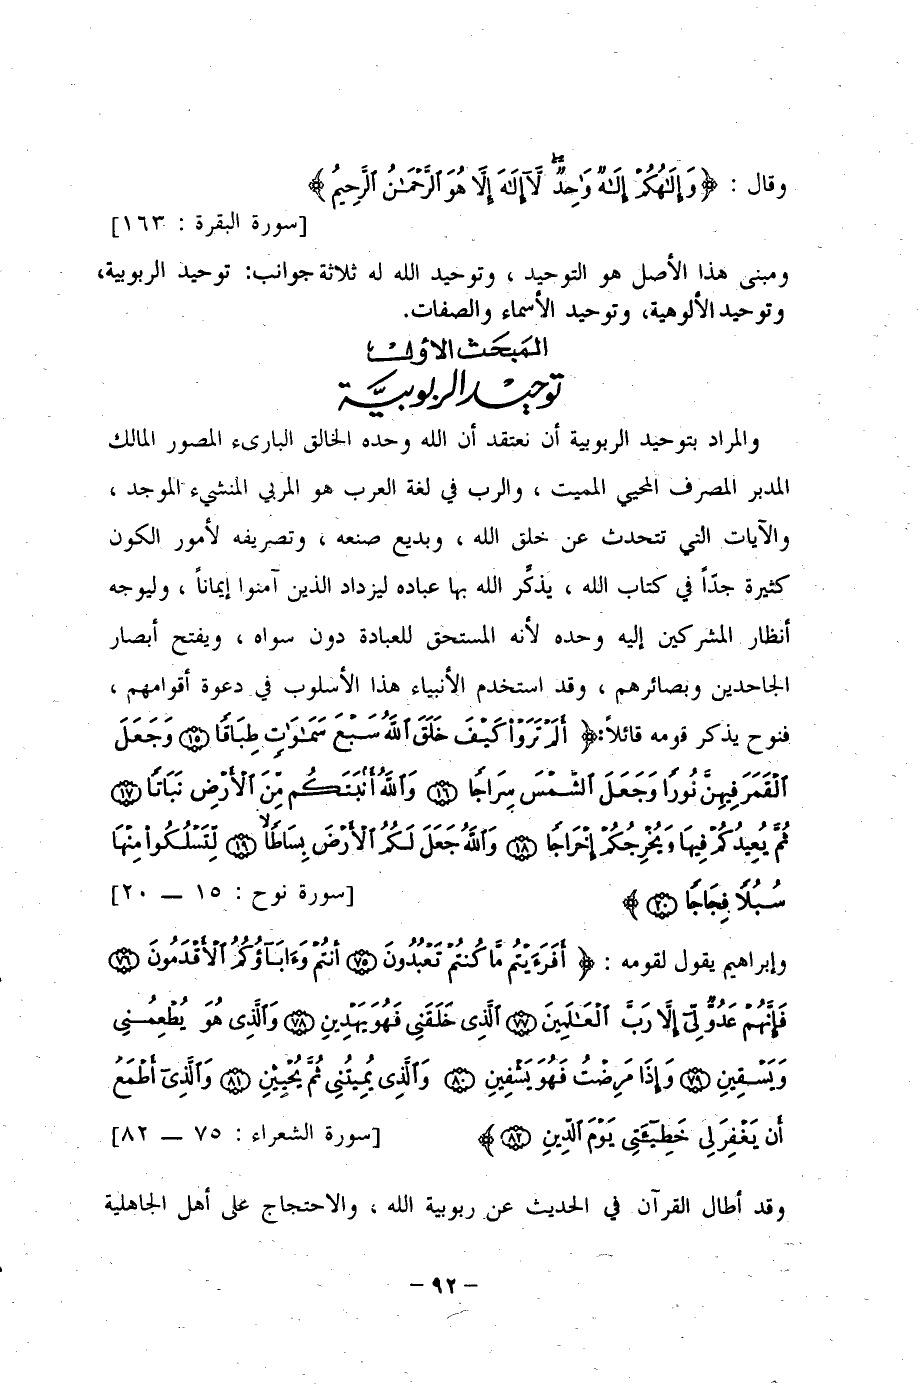 وقال : ﴿ وَإِلَٰهُكُمْ إِلَٰهٌ وَٰحِدٌ ۖ لَّآ إِلَٰهَ إِلَّا هُوَ ٱلرَّحْمَٰنُ ٱلرَّحِيمُ ﴾
[سورة البقرة : ١٦٣]
ومبنى هذا الأصل هو التوحيد ، وتوحيد الله له ثلاثة جوانب: توحيد الربوبية،
وتوحيد الألوهية، وتوحيد الأسماء والصفات.
المبحث الأول
توحيد الربوبيَّة
والمراد بتوحيد الربوبية أن نعتقد أن الله وحده الخالق البارىء المصور المالك
المدبر المصرف المحيي المميت ، والرب في لغة العرب هو المربي المنشيء الموجد ،
والآيات التي تتحدث عن خلق الله ، وبديع صنعه ، وتصريفه لأمور الكون
كثيرة جدّاً في كتاب الله ، يذكِّر الله بها عباده ليزداد الذين آمنوا إيماناً ، وليوجه
أنظار المشركين إليه وحده لأنه المستحق للعبادة دون سواه ، ويفتح أبصار
الجاحدين وبصائرهم ، وقد استخدم الأنبياء هذا الأسلوب في دعوة أقوامهم ،
فنوح يذكر قومه قائلاً: ﴿ أَلَمْ تَرَوْا۟ كَيْفَ خَلَقَ ٱللَّهُ سَبْعَ سَمَٰوَٰتٍ طِبَاقًا ١٥ وَجَعَلَ
ٱلْقَمَرَ فِيهِنَّ نُورًا وَجَعَلَ ٱلشَّمْسَ سِرَاجًا ١٦ وَٱللَّهُ أَنۢبَتَكُم مِّنَ ٱلْأَرْضِ نَبَاتًا ١٧
ثُمَّ يُعِيدُكُمْ فِيهَا وَيُخْرِجُكُمْ إِخْرَاجًا ١٨ وَٱللَّهُ جَعَلَ لَكُمُ ٱلْأَرْضَ بِسَاطًا ١٩ لِّتَسْلُكُوا۟ مِنْهَا
سُبُلًا فِجَاجًا ٢٠ ﴾ [سورة نوح : ١٥ — ٢٠]
وإبراهيم يقول لقومه : ﴿ أَفَرَءَيْتُم مَّا كُنتُمْ تَعْبُدُونَ ٧٥ أَنتُمْ وَءَابَآؤُكُمُ ٱلْأَقْدَمُونَ ٧٦
فَإِنَّهُمْ عَدُوٌّ لِّىٓ إِلَّا رَبَّ ٱلْعَٰلَمِينَ ٧٧ ٱلَّذِى خَلَقَنِى فَهُوَ يَهْدِينِ ٧٨ وَٱلَّذِى هُوَ يُطْعِمُنِى
وَيَسْقِينِ ٧٩ وَإِذَا مَرِضْتُ فَهُوَ يَشْفِينِ ٨٠ وَٱلَّذِى يُمِيتُنِى ثُمَّ يُحْيِينِ ٨١ وَٱلَّذِىٓ أَطْمَعُ
أَن يَغْفِرَ لِى خَطِيٓـَٔتِى يَوْمَ ٱلدِّينِ ٨٢ ﴾ [سورة الشعراء : ٧٥ — ٨٢]
وقد أطال القرآن في الحديث عن ربوبية الله ، والاحتجاج على أهل الجاهلية
- ٩٢ -